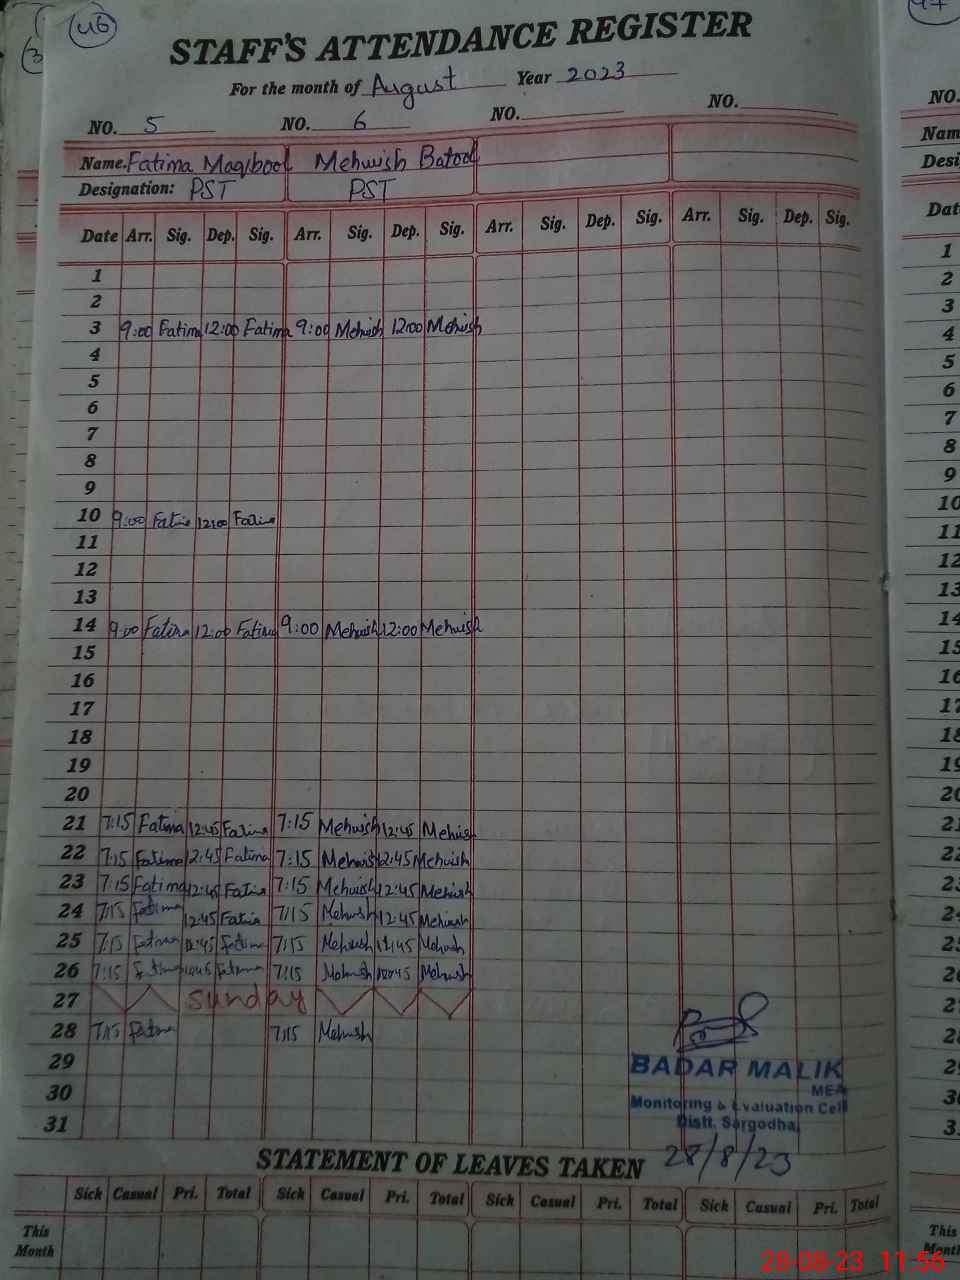 46
47
STAFF'S ATTENDANCE REGISTER
For the month of August Year 2023
NO. 5 NO. 6 NO. NO.
Name. Fatima Maqbool Mehwish Batool
Designation: PST PST
Date Arr. Sig. Dep. Sig. Arr. Sig. Dep. Sig. Arr. Sig. Dep. Sig. Arr. Sig. Dep. Sig.
1
2
3 9:00 Fatima 12:00 Fatima 9:00 Mehwish 12:00 Mehwish
4
5
6
7
8
9
10 9:00 Fatima 12:00 Fatima
11
12
13
14 9:00 Fatima 12:00 Fatima 9:00 Mehwish 12:00 Mehwish
15
16
17
18
19
20
21 7:15 Fatima 12:45 Fatima 7:15 Mehwish 12:45 Mehwish
22 7:15 Fatima 12:45 Fatima 7:15 Mehwish 12:45 Mehwish
23 7:15 Fatima 12:45 Fatima 7:15 Mehwish 12:45 Mehwish
24 7:15 Fatima 12:45 Fatima 7:15 Mehwish 12:45 Mehwish
25 7:15 Fatima Fatima 7:15 Mehwish Mehwish
26 7:15 Fatima Fatima 7:15 Mehwish Mehwish
27 Sunday
28 7:15 Fatima 7:15 Mehwish
29
30
31
BADAR MALIK
MEA
Monitoring & Evaluation Cell
Distt. Sargodha
28/8/23
STATEMENT OF LEAVES TAKEN
Sick Casual Pri. Total Sick Casual Pri. Total Sick Casual Pri. Total Sick Casual Pri. Total
This
Month
NO.
1
2
3
4
5
6
7
8
9
10
11
12
13
14
15
This
28-08-23 11:56